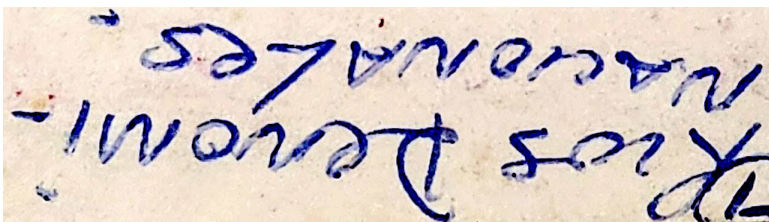 Denomi-
nacionales.